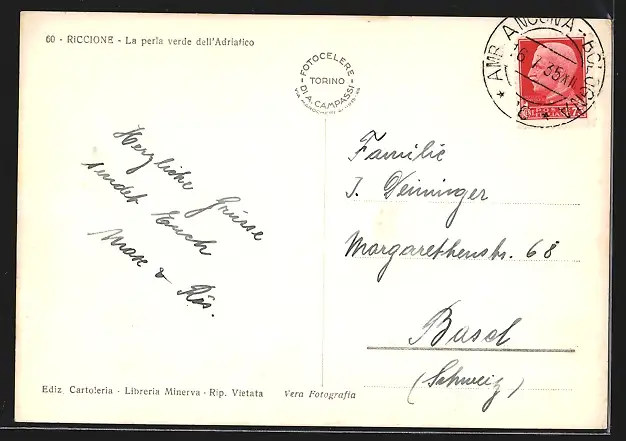 60 - RICCIONE - La perla verde dell'Adriatico
FOTOCELERE
TORINO
DI A. CAMPASSI
AMB. ANCONA - BOLOGNA
6 7 35 XIII
Herzliche Grüsse
sendet Euch
Max &
Familie
J. Deininger
Margarethenstr. 68
Basel
(Schweiz)
Ediz. Cartoleria - Libreria Minerva - Rip. Vietata
Vera Fotografia